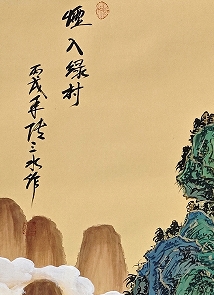 煙入绿村
丙戌年陸三水作